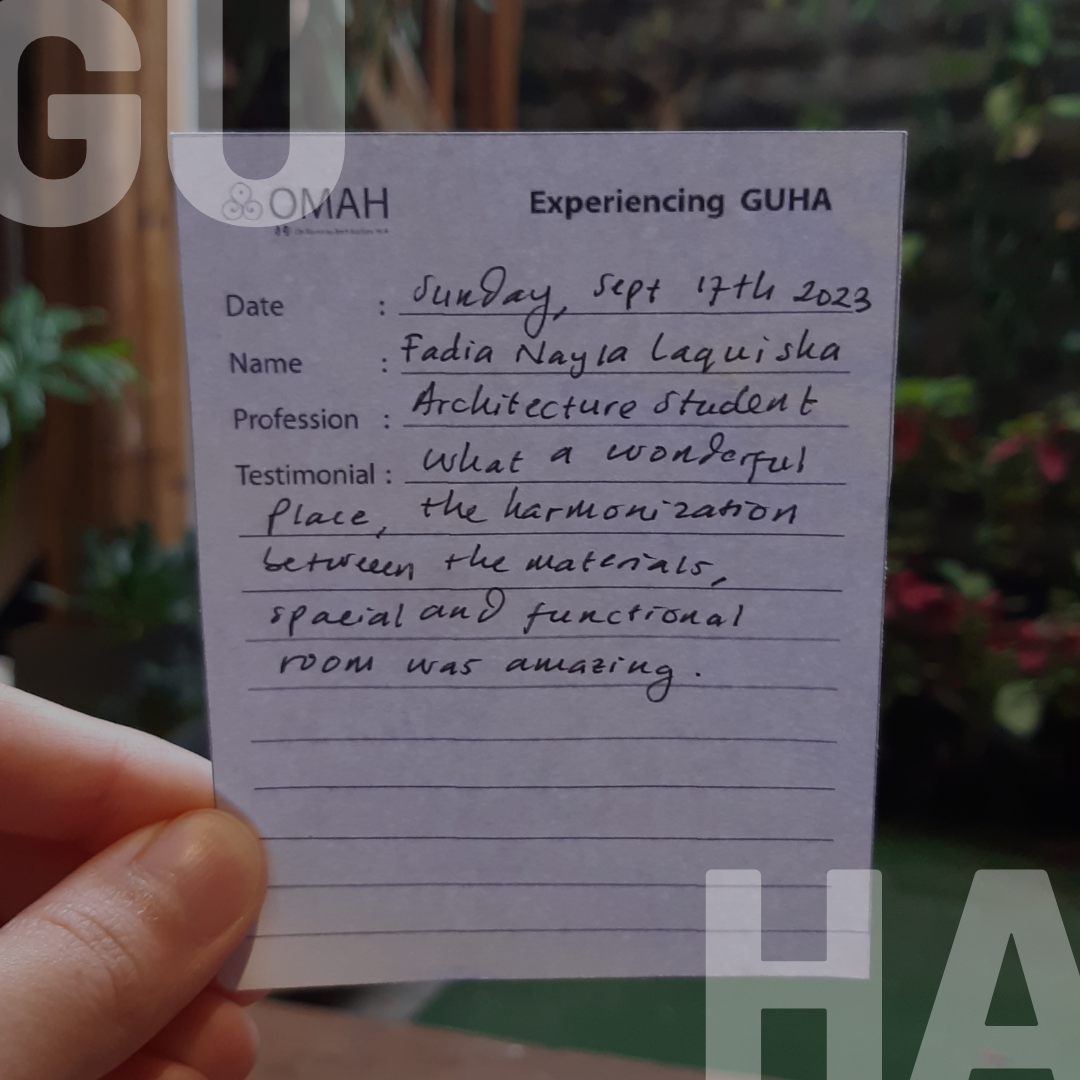 GU
OMAH
Experiencing GUHA
Date : Sunday, Sept 17th 2023
Name : Fadia Nayla Laquisha
Profession : Architecture Student
Testimonial : What a wonderful
place, the harmonization
between the materials,
spacial and functional
room was amazing.
HA